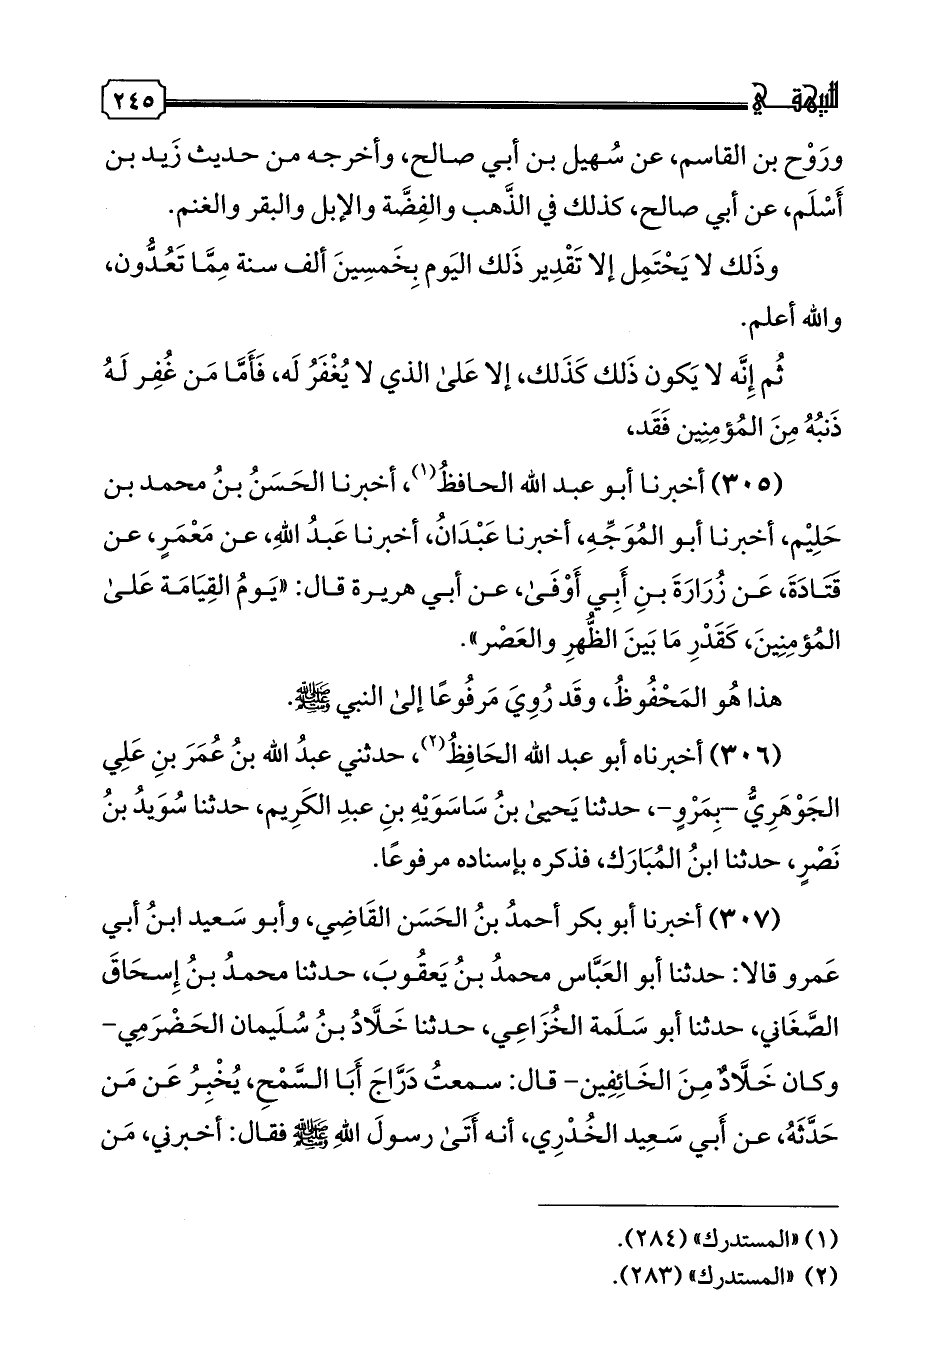 للبيهقي ٢٤٥
ورَوْح بن القاسم، عن سُهيل بن أبي صالح، وأخرجه من حديث زَيد بن
أَسْلَم، عن أبي صالح، كذلك في الذَّهب والفِضَّة والإبل والبقر والغنم.
وذَلك لا يَحْتَمِل إلا تَقْدِير ذَلك اليَوم بِخَمسِينَ ألف سنة مِمَّا تَعُدُّون،
والله أعلم.
ثُم إنَّه لا يَكون ذَلك كَذَلك، إلا عَلىٰ الذي لا يُغْفَرُ له، فَأَمَّا مَن غُفِر لَهُ
ذَنبُهُ مِنَ المُؤمِنِين فَقَد،
(٣٠٥) أخبرنا أبو عبد الله الحافظُ(١)، أخبرنا الحَسَنُ بنُ محمد بن
حَلِيْم، أخبرنا أبو المُوَجِّهِ، أخبرنا عَبْدَانُ، أخبرنا عَبدُ اللهِ، عن مَعْمَرٍ، عن
قَتَادَةَ، عَن زُرَارَةَ بنِ أَبِي أَوْفَىٰ، عن أبي هريرة قال: «يَومُ القِيَامَة عَلىٰ
المُؤمِنِينَ، كَقَدْرِ مَا بَينَ الظُّهرِ والعَصْر».
هذا هُو المَحْفُوظُ، وقَد رُوِيَ مَرفُوعًا إلىٰ النبي ﷺ.
(٣٠٦) أخبرناه أبو عبد الله الحَافِظُ(٢)، حدثني عبدُ الله بنُ عُمَرَ بنِ عَلِي
الجَوْهَرِيُّ -بِمَرْوٍ-، حدثنا يَحيىٰ بنُ سَاسَوَيْهِ بنِ عبدِ الكَرِيم، حدثنا سُوَيدُ بنُ
نَصْرٍ، حدثنا ابنُ المُبَارَك، فذكره بإسناده مرفوعًا.
(٣٠٧) أخبرنا أبو بكر أحمدُ بنُ الحَسَن القَاضِي، وأبو سَعيد ابنُ أبي
عَمرو قالا: حدثنا أبو العَبَّاس محمدُ بنُ يَعقُوبَ، حدثنا محمدُ بنُ إسحَاقَ
الصَّغَاني، حدثنا أبو سَلَمة الخُزَاعِي، حدثنا خَلَّادُ بنُ سُلَيمان الحَضْرَمِي-
وكان خَلَّادٌ مِنَ الخَائِفِين- قال: سمعتُ دَرَّاجَ أَبَا السَّمْحِ، يُخْبِرُ عَن مَن
حَدَّثَهُ، عن أَبي سَعِيد الخُدْرِي، أنه أَتَىٰ رسولَ اللهِ ﷺ فقال: أخبرني، مَن
(١) «المستدرك» (٢٨٤).
(٢) «المستدرك» (٢٨٣).